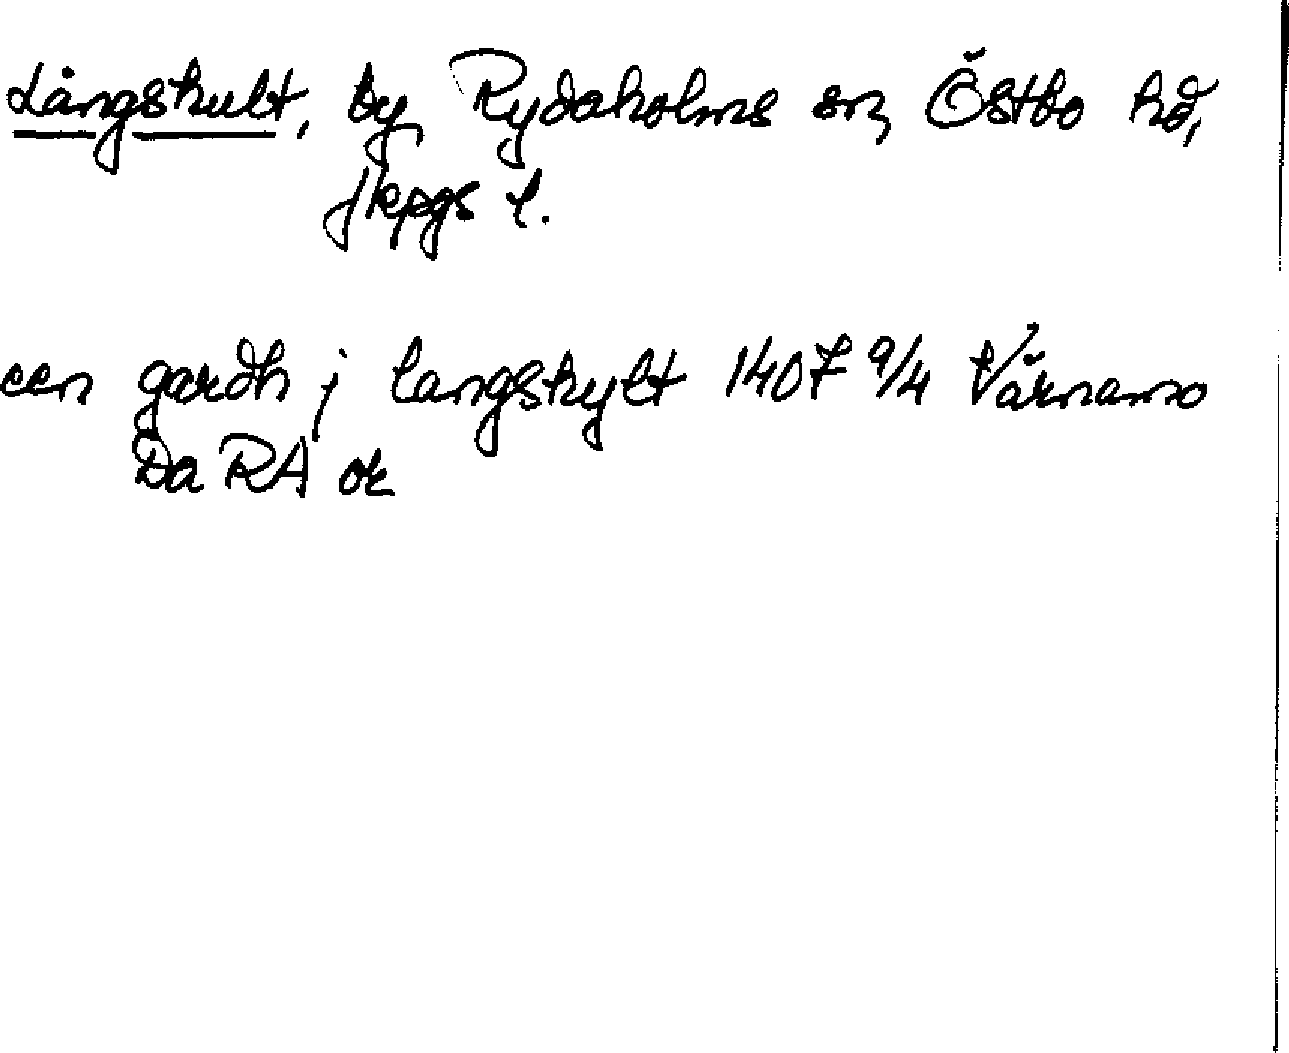 Långskult, by, Rydaholms sn, Östbo hd,
Jkpgs l.
een gardh j langskylt 1407 9/4 Värnamo
Da RA or